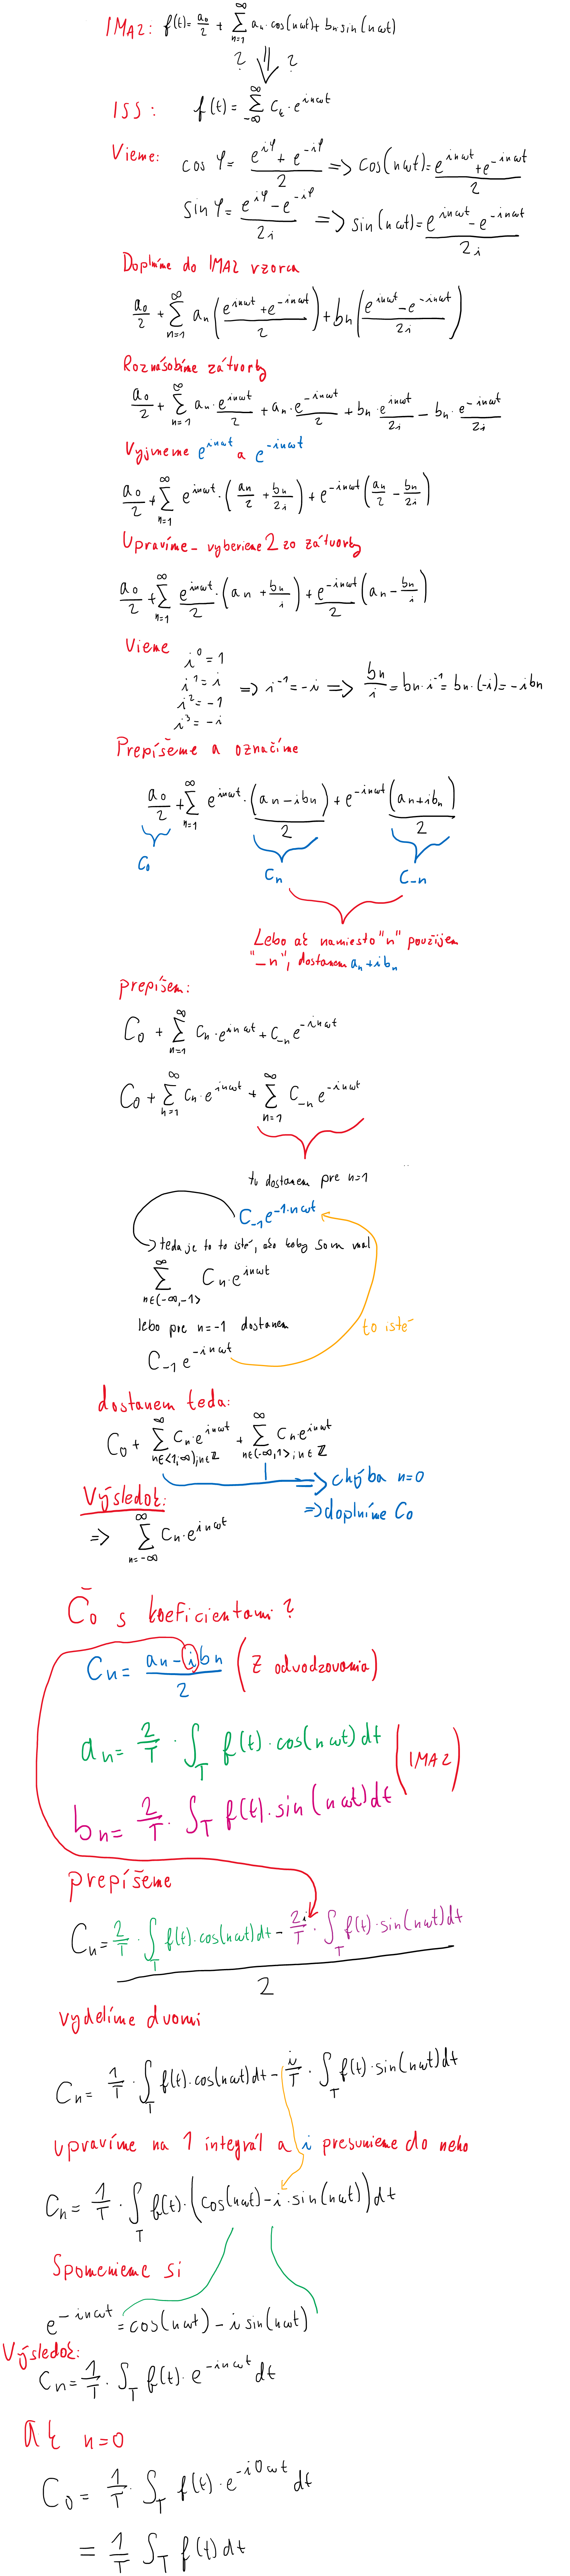 IMA2: f(t) = a₀/2 + ∑_{n=1}^{∞} aₙ·cos(nωt) + bₙ sin(nωt)
? ⇓ ?
ISS: f(t) = ∑_{-∞}^{∞} Cₖ·e^{inωt}
Vieme: cos φ = (e^{iφ} + e^{-iφ})/2 => cos(nωt) = (e^{inωt} + e^{-inωt})/2
sin φ = (e^{iφ} - e^{-iφ})/2i => sin(nωt) = (e^{inωt} - e^{-inωt})/2i
Doplníme do IMA2 vzorca
a₀/2 + ∑_{n=1}^{∞} aₙ((e^{inωt} + e^{-inωt})/2) + bₙ((e^{inωt} - e^{-inωt})/2i)
Roznásobíme zátvorky
a₀/2 + ∑_{n=1}^{∞} aₙ·e^{inωt}/2 + aₙ·e^{-inωt}/2 + bₙ·e^{inωt}/2i - bₙ·e^{-inωt}/2i
Vyjmeme e^{inωt} a e^{-inωt}
a₀/2 + ∑_{n=1}^{∞} e^{inωt}·(aₙ/2 + bₙ/2i) + e^{-inωt}(aₙ/2 - bₙ/2i)
Upravíme - vyberieme 2 zo zátvorky
a₀/2 + ∑_{n=1}^{∞} e^{inωt}/2·(aₙ + bₙ/i) + e^{-inωt}/2(aₙ - bₙ/i)
Vieme
i⁰ = 1
i¹ = i
i² = -1
i³ = -i
=> i⁻¹ = -i => bₙ/i = bₙ·i⁻¹ = bₙ·(-i) = -ibₙ
Prepíšeme a označíme
a₀/2 + ∑_{n=1}^{∞} e^{inωt}·(aₙ - ibₙ)/2 + e^{-inωt}(aₙ + ibₙ)/2
C₀ Cₙ C₋ₙ
Lebo ak namiesto "n" použijem
"-n", dostanem aₙ + ibₙ
prepíšem:
C₀ + ∑_{n=1}^{∞} Cₙ·e^{inωt} + C₋ₙ e^{-inωt}
C₀ + ∑_{n=1}^{∞} Cₙ·e^{inωt} + ∑_{n=1}^{∞} C₋ₙ e^{-inωt}
tu dostanem pre n=1
C₋₁ e^{-1·nωt}
teda je to to isté, ako keby som mal
∑_{n∈(-∞,-1>}^{∞} Cₙ·e^{inωt}
lebo pre n=-1 dostanem
to isté
C₋₁ e^{-inωt}
dostanem teda:
C₀ + ∑_{n∈<1,∞), n∈ℤ}^{∞} Cₙ·e^{inωt} + ∑_{n∈(-∞,1>, n∈ℤ}^{∞} Cₙ e^{inωt}
=> chýba n=0
=> doplníme C₀
Výsledok:
=> ∑_{n=-∞}^{∞} Cₙ·e^{inωt}
Čo s koeficientami?
Cₙ = (aₙ - ibₙ)/2 (z odvodzovania)
aₙ = 2/T · ∫_T f(t)·cos(nωt)dt
(IMA2)
bₙ = 2/T · ∫_T f(t)·sin(nωt)dt
prepíšeme
Cₙ = (2/T · ∫_T f(t)·cos(nωt)dt - 2i/T · ∫_T f(t)·sin(nωt)dt)/2
vydelíme dvomi
Cₙ = 1/T · ∫_T f(t)·cos(nωt)dt - i/T · ∫_T f(t)·sin(nωt)dt
upravíme na 1 integrál a i presunieme do neho
Cₙ = 1/T · ∫_T f(t)·(cos(nωt) - i·sin(nωt))dt
Spomenieme si
e^{-inωt} = cos(nωt) - i sin(nωt)
Výsledok:
Cₙ = 1/T · ∫_T f(t)·e^{-inωt} dt
Ak n=0
C₀ = 1/T · ∫_T f(t)·e^{-i0ωt} dt
= 1/T ∫_T f(t)dt